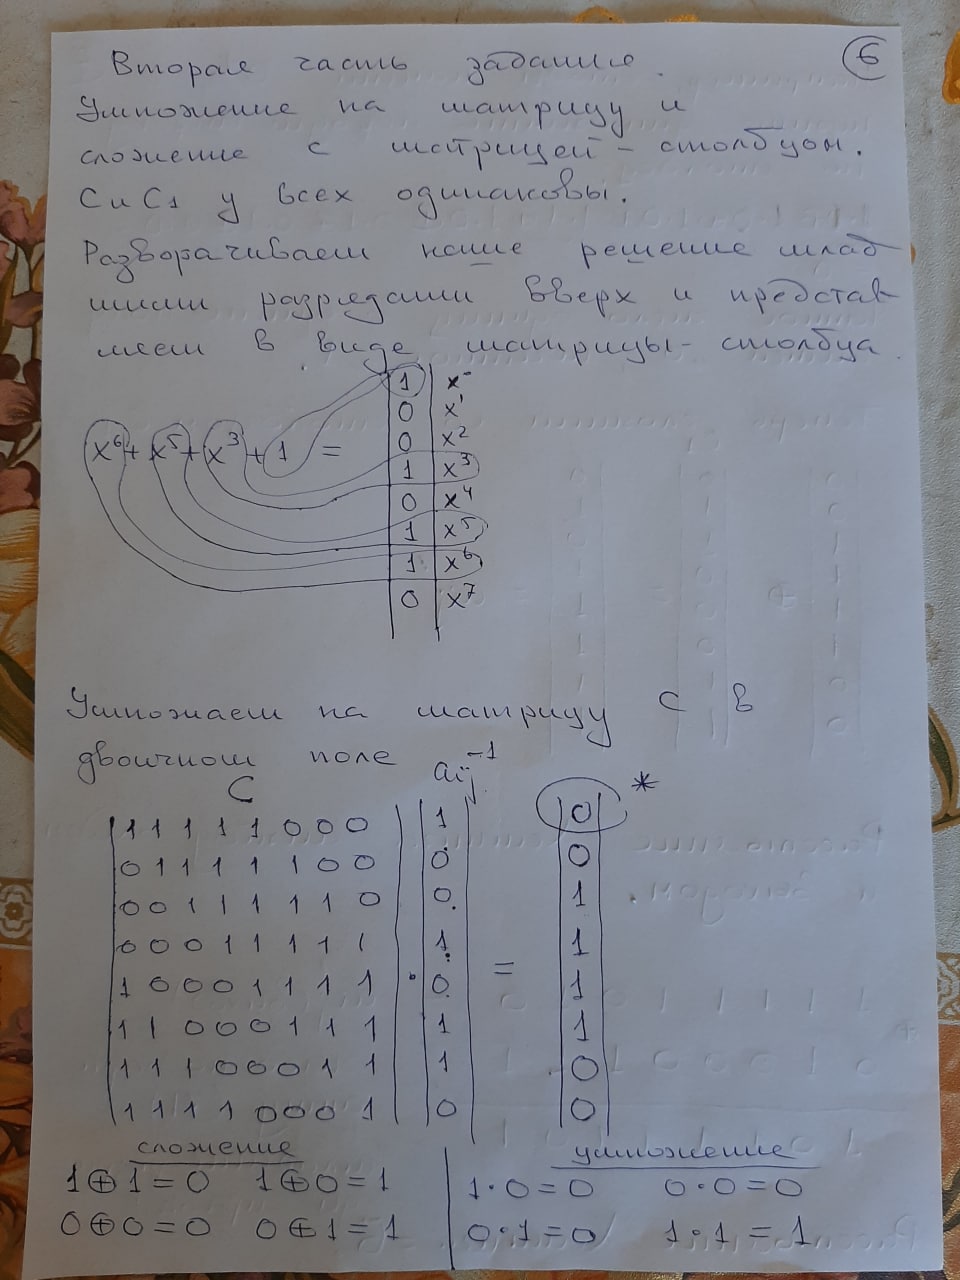 6
Вторая часть задания.
Умножение на матрицу и
сложение с матрицей-столбцом.
C и C1 у всех одинаковы.
Разворачиваем наше решение млад
шими разрядами вверх и представ
ляем в виде матрицы-столбца.
1 x
0 x¹
0 x²
x⁶ + x⁵ + x³ + 1 = 1 x³
0 x⁴
1 x⁵
1 x⁶
0 x⁷
Умножаем на матрицу C в
двоичном поле
C aij⁻¹ *
1 1 1 1 1 0 0 0 1 0
0 1 1 1 1 1 0 0 0 0
0 0 1 1 1 1 1 0 0 1
0 0 0 1 1 1 1 1 1 1
1 0 0 0 1 1 1 1 · 0 = 1
1 1 0 0 0 1 1 1 1 1
1 1 1 0 0 0 1 1 1 0
1 1 1 1 0 0 0 1 0 0
сложение умножение
1⊕1=0 1⊕0=1 1·0=0 0·0=0
0⊕0=0 0⊕1=1 0·1=0 1·1=1